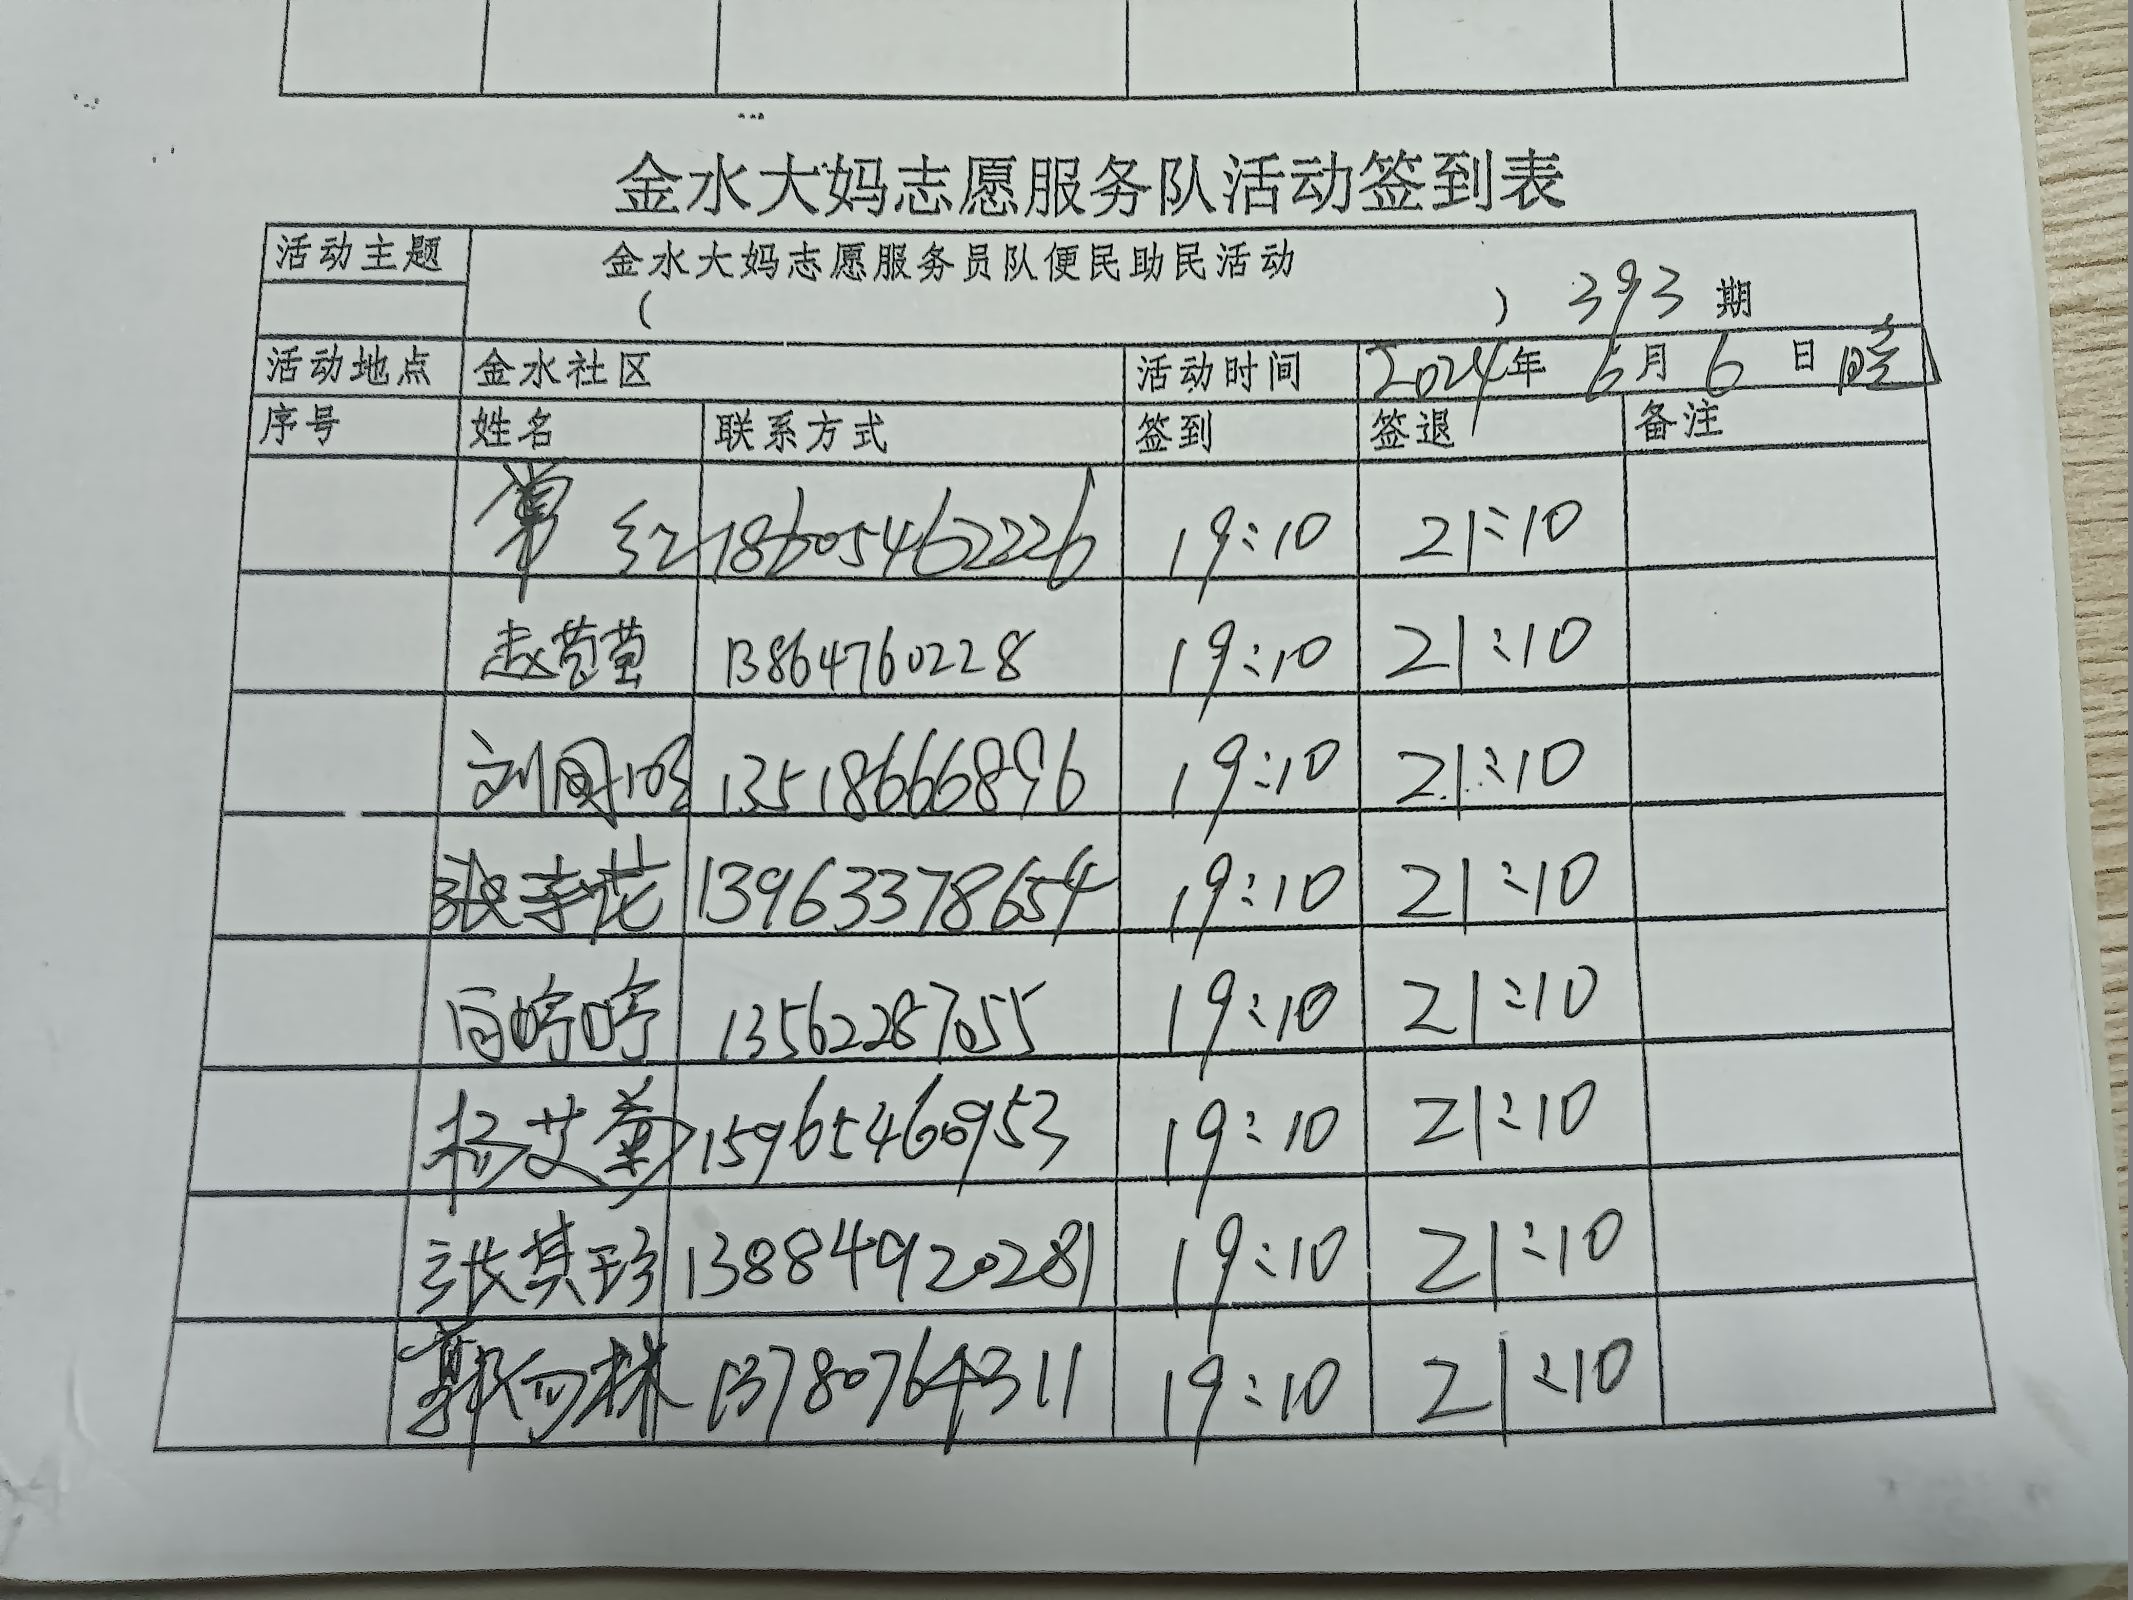 金水大妈志愿服务队活动签到表
活动主题 金水大妈志愿服务员队便民助民活动
( ) 393 期
活动地点 金水社区 活动时间 2024年 6月 6 日 晚
序号 姓名 联系方式 签到 签退 备注
红 18605462226 19:10 21:10
赵莹莹 13864760228 19:10 21:10
刘国 13518666896 19:10 21:10
张 花 13963378654 19:10 21:10
婷婷 13562287055 19:10 21:10
杨艾菊 15965460953 19:10 21:10
张其珍 13884920281 19:10 21:10
郭 林 13780764311 19:10 21:10